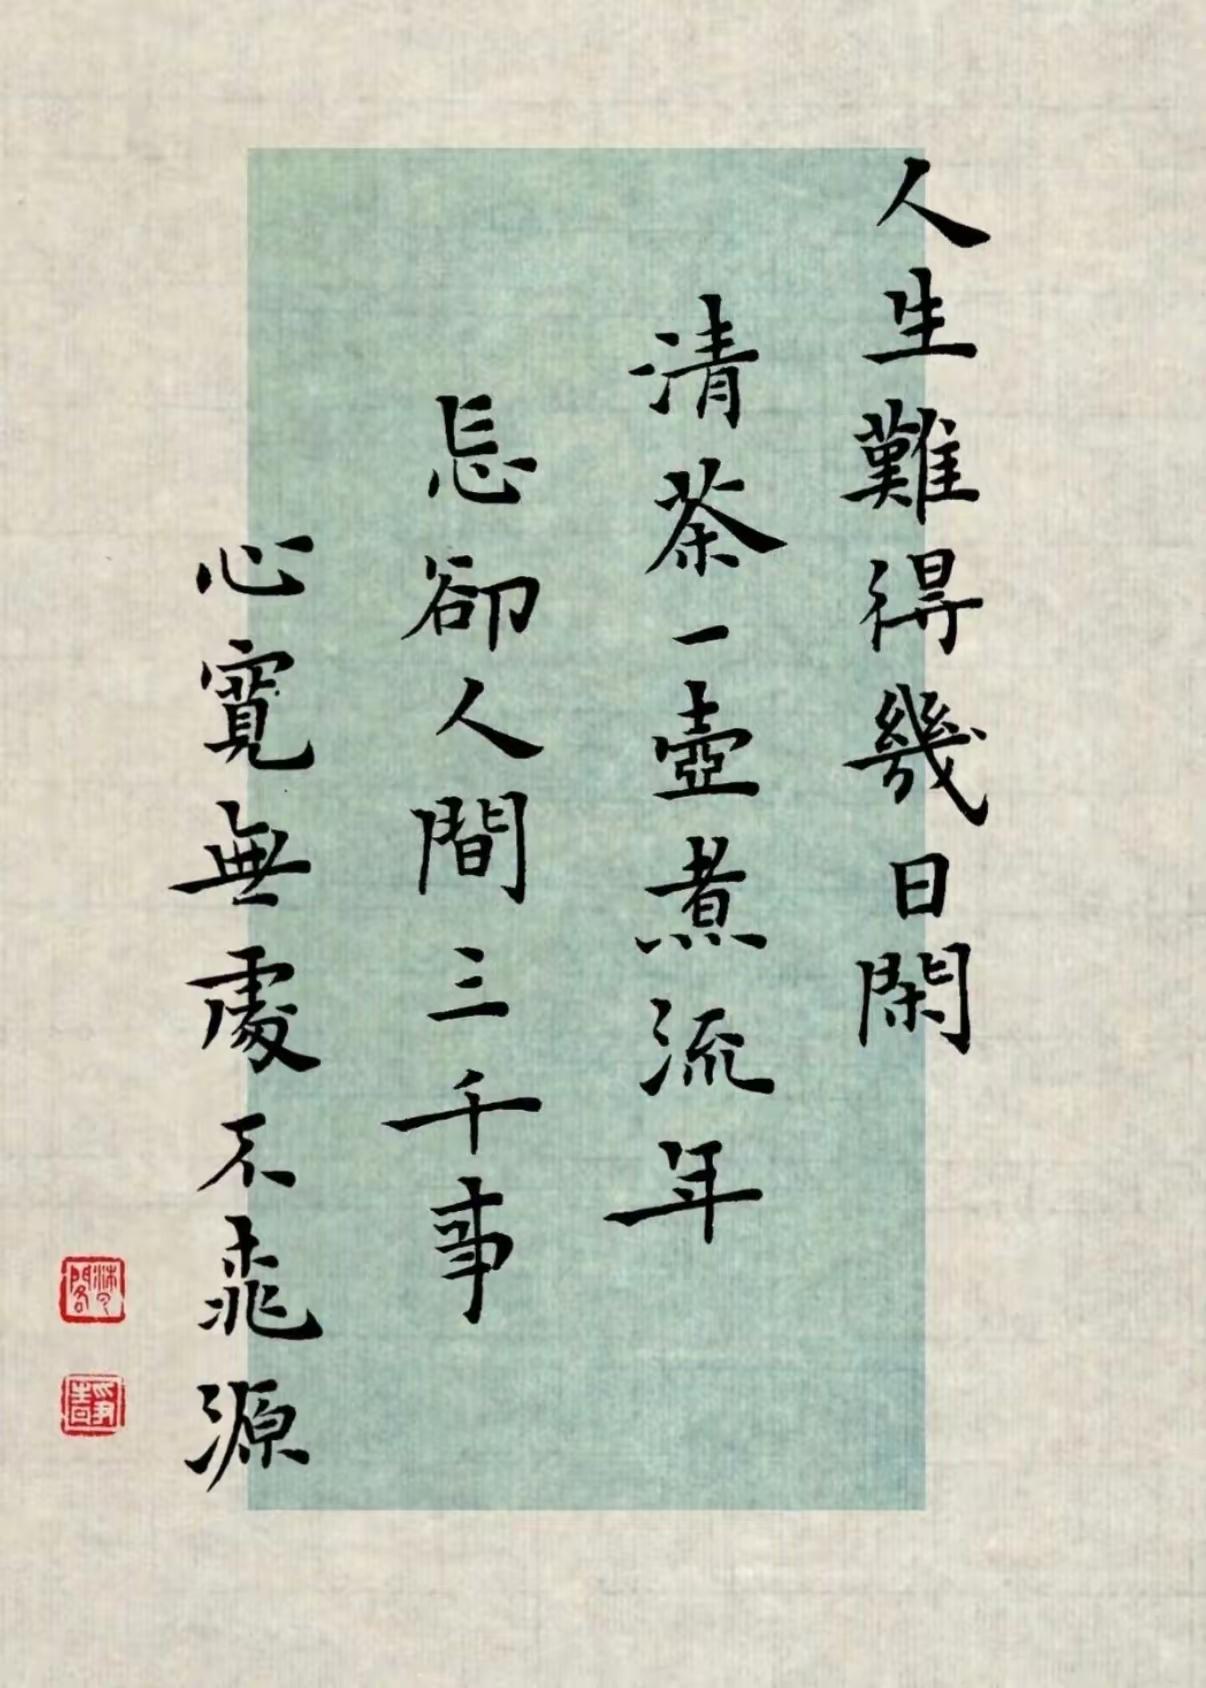 人生難得幾日閑
清茶一壺煮流年
忘卻人間三千事
心寬無處不桃源